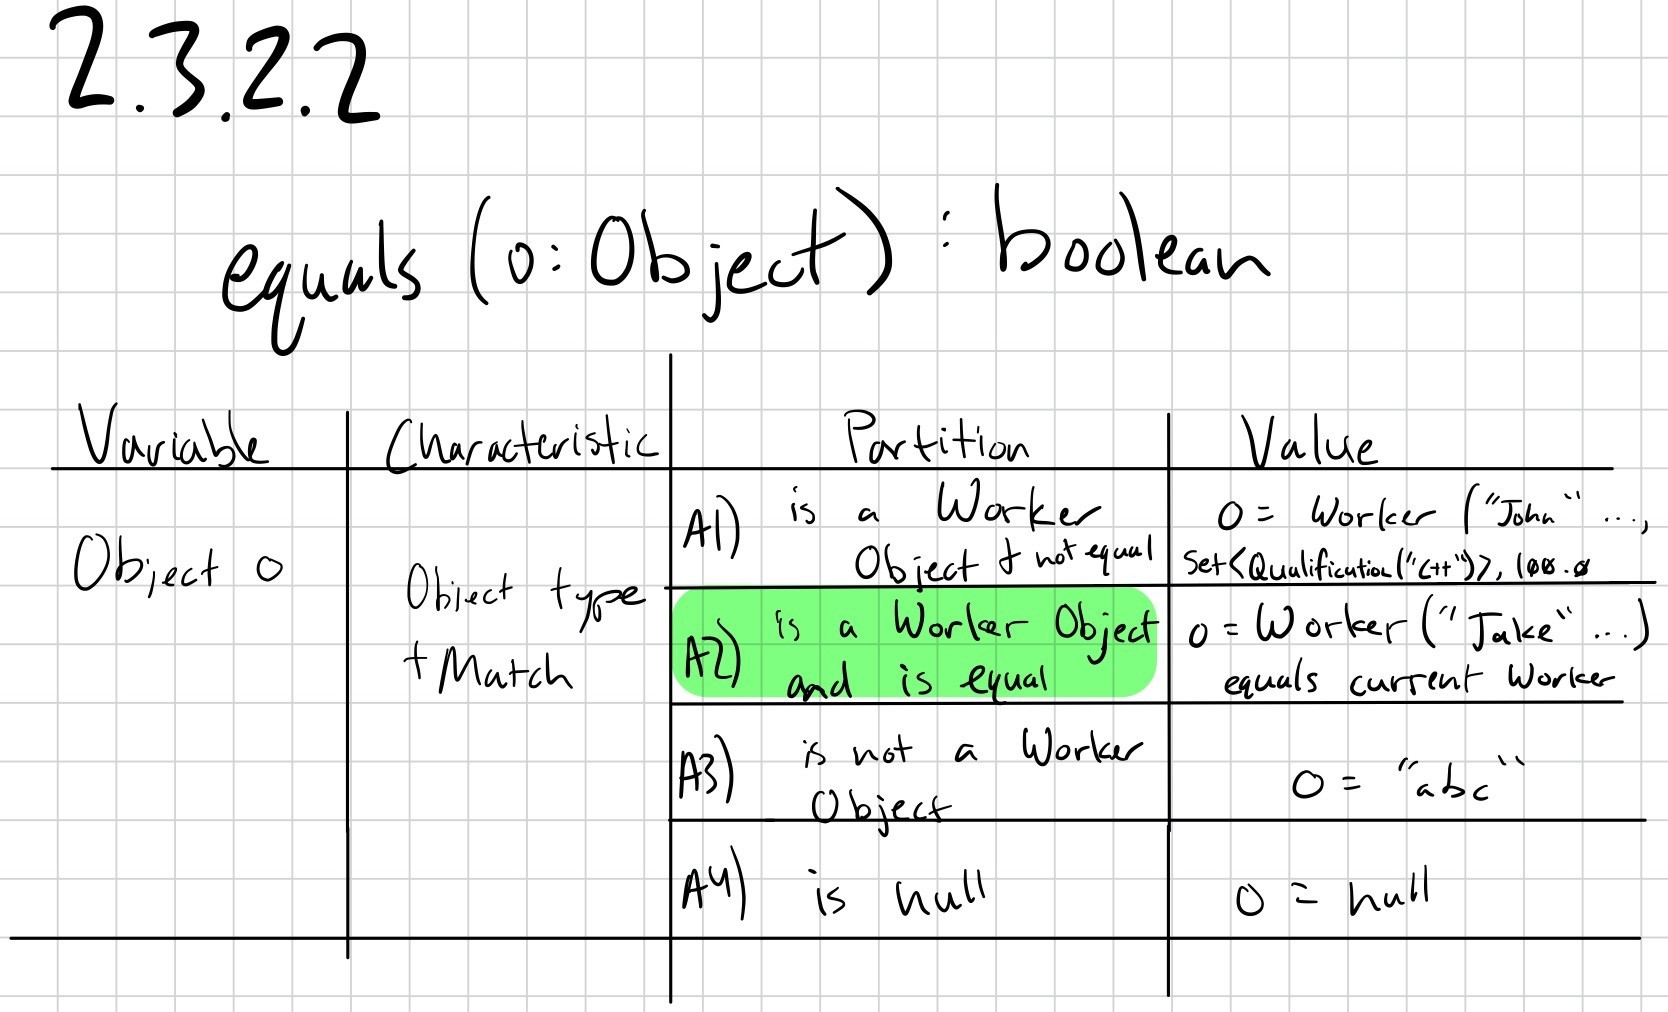 2.3.2.2
equals (o: Object) : boolean
Variable Characteristic Partition Value
Object o
Object type
+ Match
A1) is a Worker
Object + not equal
o = Worker ("John" ...,
Set<Qualification("C++")>, 100.0
A2) is a Worker Object
and is equal
o = Worker ("Jake" ...)
equals current Worker
A3) is not a Worker
Object
o = "abc"
A4) is null
o = null